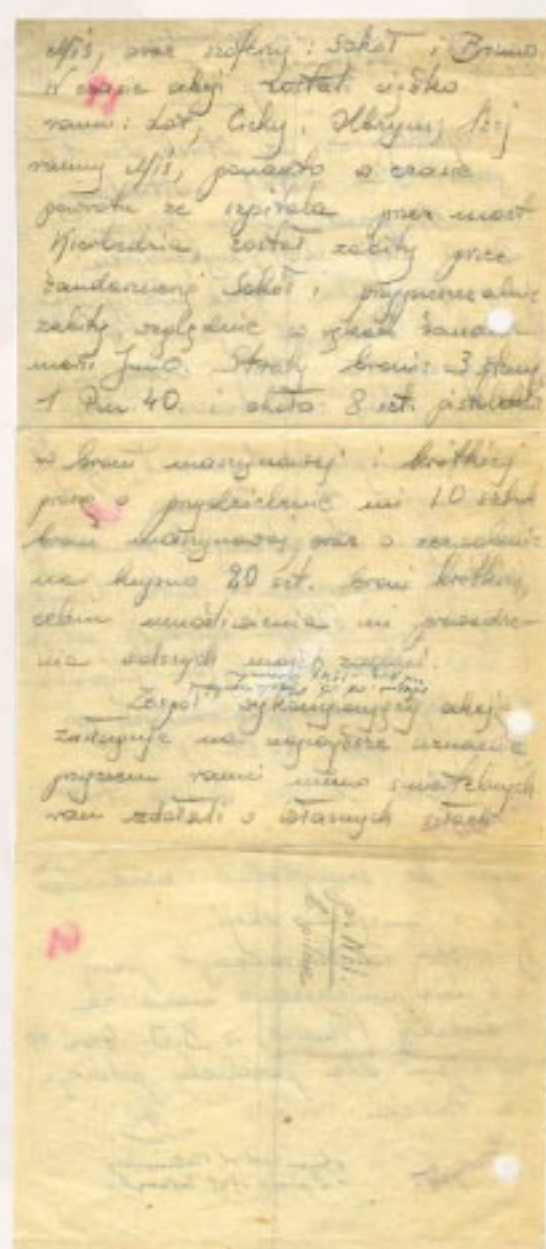 Miś, oraz szoferzy: Sokół i Bruno
W czasie akcji zostali ciężko
ranni: Lot, Cichy, Olbrzym, lżej
ranny Miś, ponadto w czasie
powrotu ze szpitala przez most
Kierbedzia, został zabity przez
żandarmerię Sokół i przypuszczalnie
zabity, względnie w rękach żandar-
merii Juno. Straty broni: 3 steny,
1 Pm. 40. i około 8 szt. pistoletów
w broni maszynowej i krótkiej
proszę o przydzielenie mi 10 sztuk
broni maszynowej oraz o zezwolenie
na kupno 20 szt. broni krótkiej,
celem umożliwienia mi prowadze-
nia dalszych moich zajęć.
Zespół wykonujący akcję
zasługuje na najwyższe uznanie
przyczem ranni mimo śmiertelnych
ran zdołali o własnych siłach
2